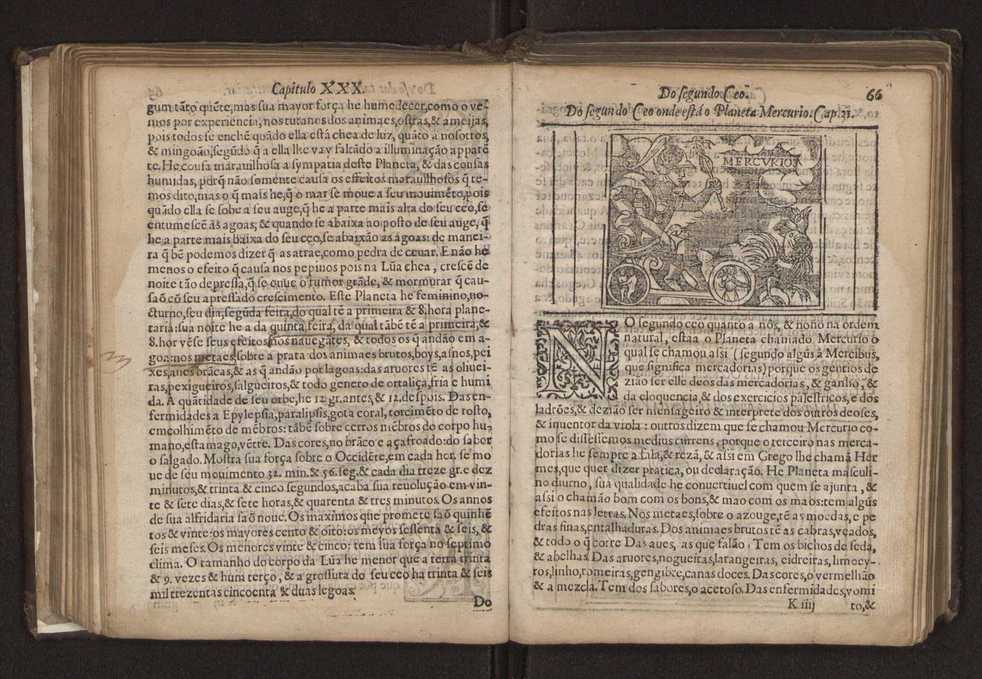 Capitulo XXX.
gum tãto quẽte, mas sua mayor força he humedecer, como o ve-
mos por experiencia, nos tutanos dos animaes, ostras, & ameijas,
pois todos se enchẽ quãdo ella està chea de luz, quãto a nosoutos,
& mingoão, segũdo q̃ a ella lhe vay faltãdo a illuminação apparẽ
te. He cousa marauilhosa a sympatia deste Planeta, & das cousas
humidas, porq̃ não somente causa os effeitos marauilhosos q̃ te-
mos dito, mas o q̃ mais he, q̃ o mar se moue a seu mouimẽto, pois
quãdo ella se sobe a seu auge, q̃ he a parte mais alta do seu ceo, sè
entumescẽ as agoas; & quando se abaixa ao posto de seu auge, q̃
he a parte mais baixa do seu ceo, se abaixão as agoas: de manei-
ra q̃ bẽ podemos dizer q̃ as atrae, como pedra de ceuar. E não he
menos o efeito q̃ causa nos pepinos pois na Lũa chea, crescẽ de
noite tão depressa, q̃ se ouue o rumor grãde, & mormurar q̃ cau-
sa õ cõ seu apressado crescimento. Este Planeta he feminino, no-
cturno, seu dia, segũda feira, do qual tẽ a primeira & 8. hora plane-
taria: sua noite he a da quinta feira, da qual tãbẽ tẽ a primeira, &
8. hor vẽse seus efeitos nos nauegãtes, & todos os q̃ andão em a-
goa: nos metaes, sobre a prata dos animaes brutos, boys, asnos, pei
xes, aues brãcas, & as q̃ andão por lagoas: das aruores tẽ as oliuei-
ras, pexigueiros, salgueiros, & todo genero de ortaliça, fria e humi
da. A quãtidade de seu orbe, he 12. gr. antes, & 12. despois. Das en-
fermidades a Epylepsia, paralipsis, gota coral, torcimẽto de rosto,
emcolhimẽto de mẽbros: tãbẽ sobre certos mẽbros do corpo hu-
mano, estamago, vẽtre. Das cores, no brãco e açafroado: do sabor
o salgado. Mostra sua força sobre o Occidẽte, em cada her. se mo
ue de seu mouimento 32. min. & 56. seg. & cada dia treze gr. e dez
minutos, & trinta & cinco segundos, acaba sua reuolução em vin-
te & sete dias, & sete horas, & quarenta & tres minutos. Os annos
de sua alfridaria saõ noue. Os maximos que promete saõ quinhẽ
tos & vinte: os mayores cento & oito: os meyos sessenta & seis, &
seis meses. Os menores vinte & cinco: tem sua força no septimo
clima. O tamanho do corpo da Lũa he menor que a terra trinta
& 9. vezes & hum terço, & a grossura do seu ceo ha trinta & seis
mil trezentas cincoenta & duas legoas.
Do
Do segundo Ceo.
66
Do segundo Ceo onde está o Planeta Mercurio. Cap. 31.
MERCVRIO
NO segundo ceo quanto a nòs, & nono na ordem
natural, estaa o Planeta chamado Mercurio o
qual se chamou assi (segundo algũs à Mercibus,
que significa mercadorias) porque os gentios de
zião ser elle deos das mercadorias, & ganho, &
da eloquencia, & dos exercicios palestricos, e dos
ladrões, & dezião ser mensageiro & interprete dos outros deoses,
& inuentor da viola: outros dizem que se chamou Mercurio co-
mo se dissessemos medius currens, porque o terceiro nas merca-
dorias he sempre a fala, & rezã, & assi em Grego lhe chamã Her
mes, que quer dizer pratica, ou declaração. He Planeta masculi-
no diurno, sua qualidade he conuertiuel com quem se ajunta, &
assi o chamão bom com os bons, & mao com os maos: tem algũs
efeitos nas letras. Nos metaes, sobre o azougue, tẽ as moedas, e pe
dras finas, entalhaduras. Dos animaes brutos tẽ as cabras, veados,
& todo o q̃ corre Das aues, as que falão. Tem os bichos de seda,
& abelhas. Das aruores, nogueiras, larangeiras, cidreiras, limoey-
ros, linho, romeiras, gengibre, canas doces. Das cores, o vermelhão
& a mezcla. Tem dos sabores, o acetoso. Das enfermidades, vomi
K iiij
to, &